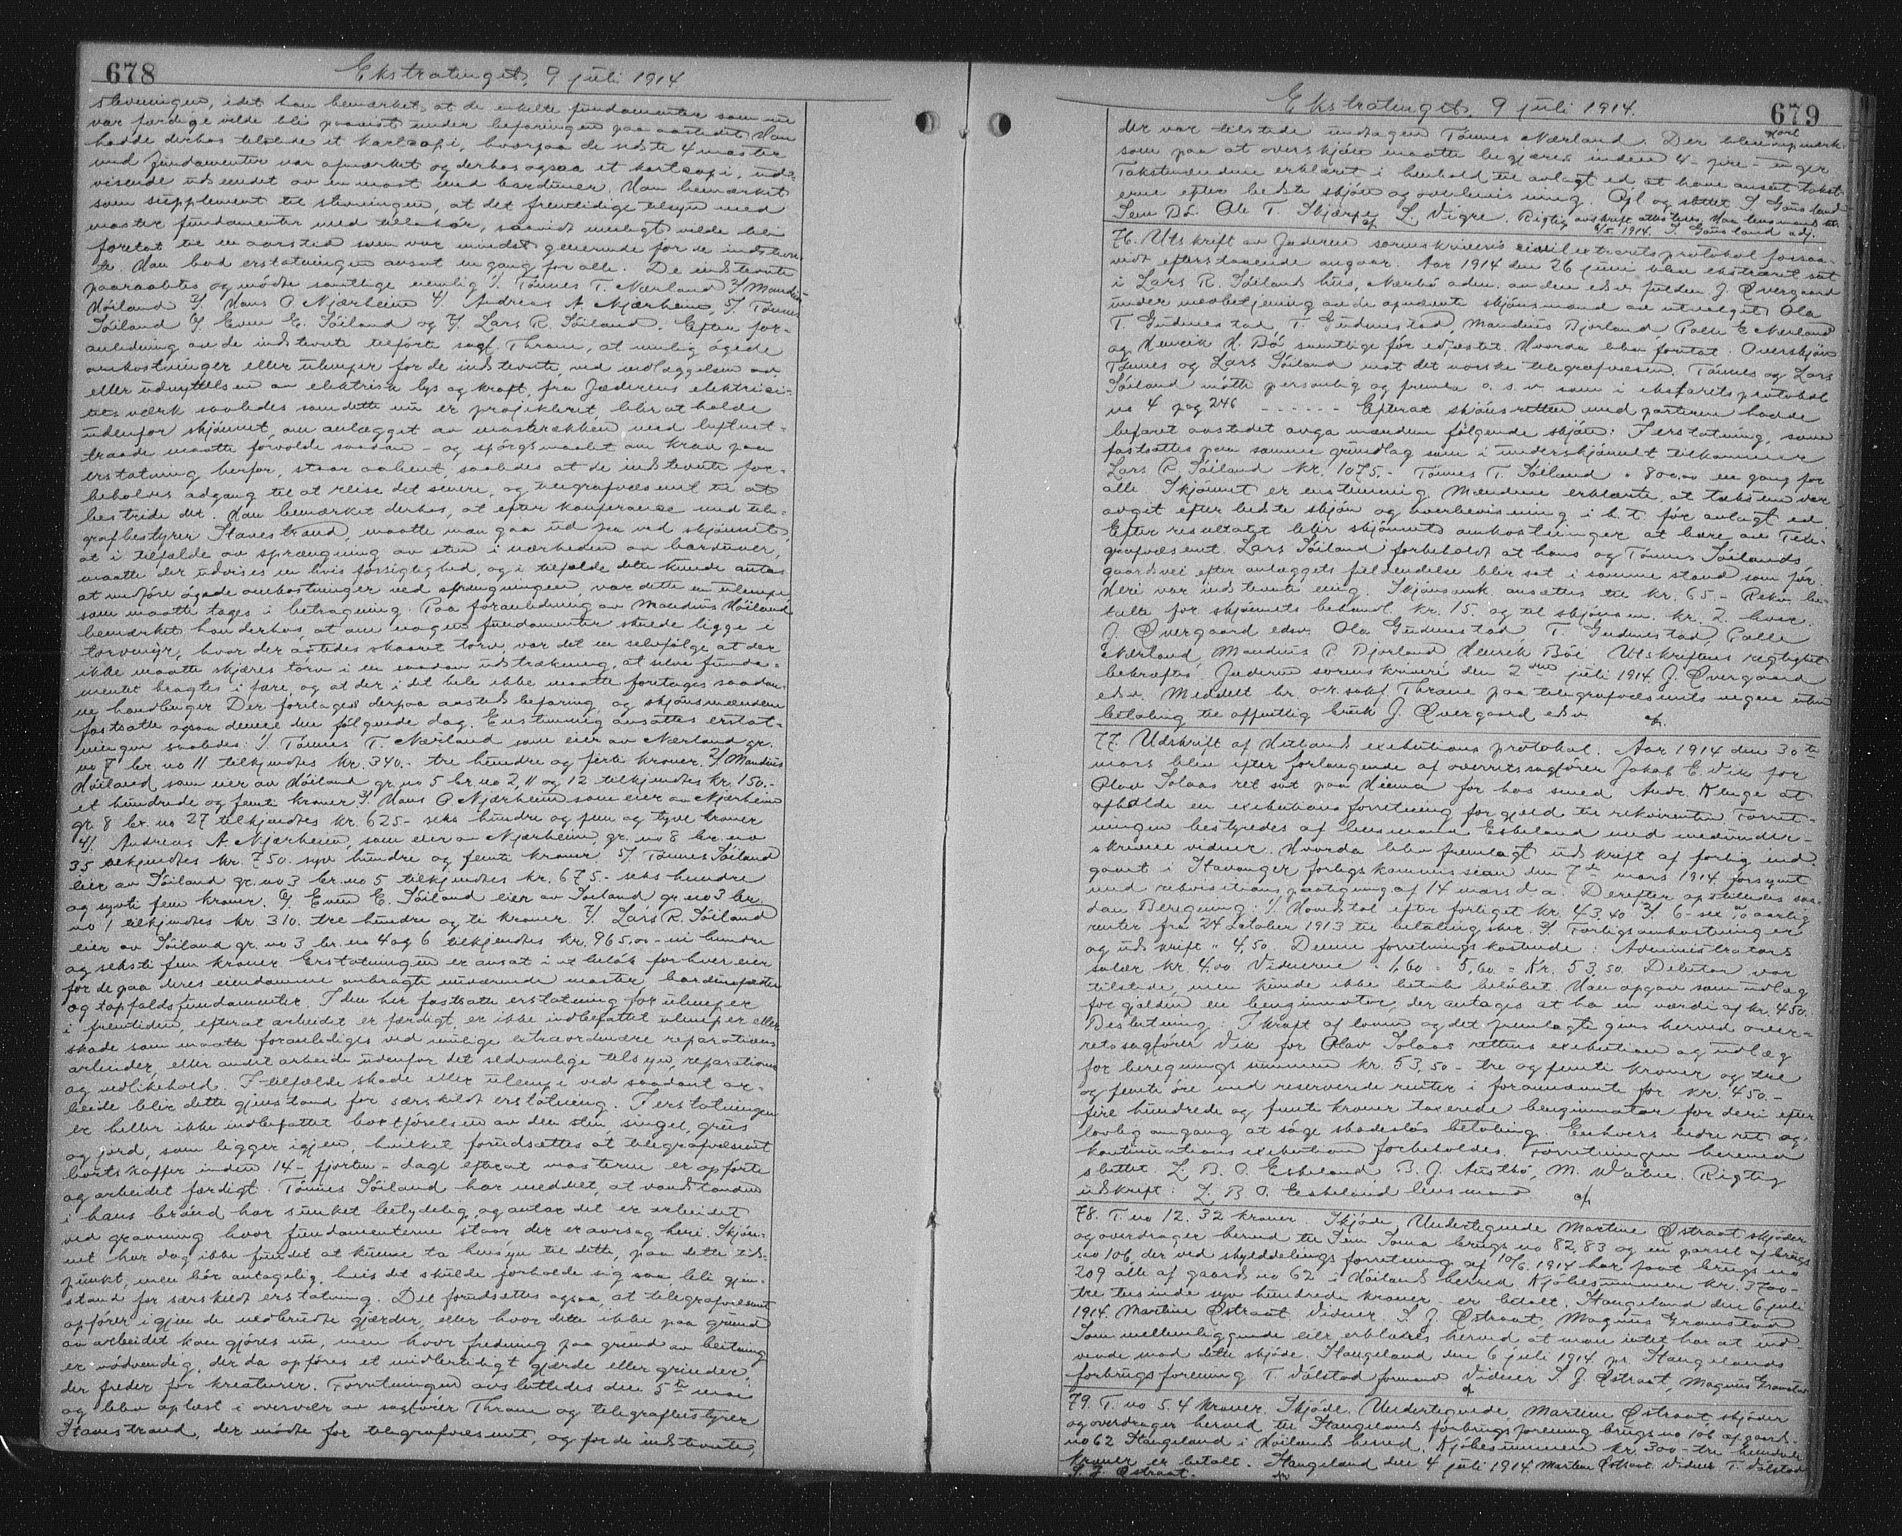 678
Ekstratinget, 9 juli 1914
stevningen, idet han bemærket at de enkelte fundamenter som nu
var færdige vilde bli paavist under befaringen paa aastedet. Han
hadde derhos tilstede et kartcopi, hvorpaa de sidste 4 master
med fundamenter var avmærket og derhos ogsaa et kartcopi, ud-
visende udseendet av en mast med barduner. Han bemærket
som supplement til stevningen, at det fremtidige tilsyn med
master fundamenter med tilbehør, saavidt muligt vilde bli
foretat til en aarstid som var mindst generende for de indstevn-
te. Han bød erstatningen ansat en gang for alle. De indstevnte
paaraabtes og mødte samtlige nemlig 1/ Tønnes T. Nærland 2/ Mandius
Høiland 3/ Hans O Njærheim 4/ Andreas A Njærheim, 5/ Tønnes
Søiland 6/ Even E. Søiland og 7/ Lars R. Søiland. Efter for-
anledning av de indstevnte tilførte sagf. Thrane, at mulig øgede
omkostninger eller ulemper for de indstevnte, ved indlæggelsen av
eller udnyttelsen av elektrisk lys og kraft, fra Jæderens elektrici-
tetsværk saaledes som dette nu er projekteret, blir at holde
udenfor skjønnet, om anlægget av masterækken med luftnet-
traade maatte forvolde saadan - og spørgsmaalet om krav paa
erstatning herfor, staar aabent, saaledes at de indstevnte for-
beholdes adgang til at reise det senere, og telegrafvæsenet til at
bestride det. Han bemærket derhos, at efter konferance med tele-
grafbestyrer Stavestrand, maatte man gaa ud fra ved skjønnet,
at i tilfælde av sprængning av sten i nærheden av barduner,
maatte der udvises en hvis forsigtighed, og i tilfælde dette kunde antas
at medføre øgede omkostninger ved sprængningen, var dette en ulempe
som maatte tages i betragtning. Paa foranledning av Mandius Høiland
bemærket han derhos, at om nogen fundamenter skulde ligge i
torvmyr, hvor der aastedes skaaret torv, var det en selvfølge at der
ikke maatte skjæres torv i en saadan udstrækning, at selve funda-
mentet bragtes i fare, og at der i det hele ikke maatte foretages saadan-
ne handlinger. Der foretages derpaa aastedsbefaring, og skjønsmændene
fortsatte ogsaa denne den følgende dag. Enstemmig ansattes erstat-
ningen saaledes: 1/ Tønnes T. Nærland som eier av Nærland gr.
no 7 br. no 11 tilkjendtes kr. 340.- tre hundre og førti kroner. 2/ Mandius
Høiland, som eier av Høiland gr. no 5 br no 2, 11 og 12 tilkjendtes kr. 150.-
et hundrede og femti kroner 3/ Hans O Njærheim som eier av Njærheim
gr. 8 br. no 27 tilkjendtes kr. 625- seks hundre og fem og tyve kroner
4/ Andreas A Njærheim, som eier av Njærheim, gr. no 8 br. no
35 tilkjendtes kr. 750. syv hundre og femti kroner, 5/ Tønnes Søiland
eier av Søiland gr. no 3 br. no 5 tilkjendtes kr. 675- seks hundre
og sytti fem kroner. 6/ Even E. Søiland eier av Søiland gr. no 3 br
no 1 tilkjendtes kr. 310. tre hundre og ti kroner. 7/ Lars R. Søiland
eier av Søiland gr. no 3 br. no 4 og 6 tilkjendtes kr. 965,00- ni hundre
og seksti fem kroner. Erstatningen er ansat i et beløb for hver eier
for de paa deres eiendommer anbragte nuværende master, bardunfæster
og tapfaldsfundamenter. I den her fastsatte erstatning for ulemper
i fremtiden, efterat arbeidet er færdigt, er ikke indbefattet ulemper eller
skade som maatte foranlediges ved mulige extraordinære reparations
arbeider, eller andet arbeide udenfor det sedvanlige tilsyn, reparations
og vedlikehold. I tilfælde skade eller ulempe ved saadant ar-
beide blir dette gjenstand for særskildt erstatning. I erstatningen
er heller ikke indbefattet bortkjørelsen av den sten, singel, grus
og jord, som ligger igjen, hvilket forudsættes at telegrafvæsenet
bortskaffer inden 14- fjorten - dage efterat masterne er opførte
og arbeidet færdigt. Tønnes Søiland har meddelt, at vandstanden
i hans brønd har sunket betydelig, og antar det er arbeidet
ved gravning hvor fundamenterne staar der er aarsag heri. Skjøn-
net har dog ikke fundet at kunne ta hensyn til dette, paa dette tids-
punkt, men bør antagelig, hvis det skulde forholde sig saa, bli gjen-
stand for særskildt erstatning. Det forudsættes ogsaa, at telegrafvæsenet
opfører igjen de nedbrudte gjærder, eller hvor dette ikke paa grund
av arbeidet kan gjøres nu, men hvor fredning paa grund av beitning
er nødvendig, der da opføres et midlertidigt gjærde eller grinder,
der freder for kreaturer. Forretningen avsluttedes den 5te mai
og blev oplæst i overvær av sagfører Thrane og telegrafbestyrer
Stavestrand, der mødte for telegrafvæsenet, og for de indstevnte,
Ekstratinget, 9 juli 1914.
679
der var tilstede undtagen Tønnes Nærland. Der blev gjort opmærk-
som paa at overskjøn maatte begjæres inden 4 - fire - uger
Takstmændene erklæret i henhold til avlagt ed at have ansat takst-
erne efter bedste skjøn og overbevisning. Opl og sluttet J. Gausland
Sem Bø. Ole T. Skjærpe L. Vigre. Rigtig avskrift attesteres,
6/5 1914. J. Gausland adj.
76. Utskrift av Jæderen sorenskriveris civilextraretsprotokol forsaa-
vidt efterstaaende angaar. Aar 1914 den 26 juni blev ekstraret sat
i Lars R. Søilands hus, Nærbø adm. av den edsv. fuldm J. Øvergaard
under medbetjening av de opnævnte skjønsmænd av utvalget Ola
T. Gudmestad, T. Gudmestad, Mandius Bjorland Palle E Nærland
og Henrik H. Bø samtlige før edfæstet. Hvorda blev foretat: Overskjøn
Tønnes og Lars Søiland mot det norske telegrafvæsen. Tønnes og Lars
Søiland møtte personlig og fremla o. s. v. som i ekstraretsprotokol
no 4 pag 246 - - - - - - Efterat skjønsretten med parterne hadde
befaret aastedet avga mændene følgende skjøn: I erstatning, som
fastsættes paa samme grundlag som i underskjønnet tilkommer
Lars R. Søiland kr. 1075.- Tønnes T. Søiland " 800,00 en gang for
alle. Skjønnet er enstemmig. Mændene erklærte, at taksten var
avgit efter bedste skjøn og overbevisning i h. t. før avlagt ed
Efter resultatet blir skjønnets omkostninger at bære av Tele-
grafvæsenet. Lars Søiland forbeholdt at hans og Tønnes Søilands
gaardsvei efter anlæggets fuldendelse blir sat i samme stand som før.
Heri var indstevnte enig. Skjønsomk ansættes til kr. 65- Rekv. be-
talte for skjønnets behandl. kr. 15. og til skjønsm. kr. 2 hver.
J. Øvergaard edsv. Ola Gudmestad T. Gudmestad Palle
Nærland, Mandius P. Bjorland Henrik Bøe. Utskriftens rigtighet
bekræftes. Jæderen sorenskriveri den 2den juli 1914. J. Øvergaard
edsv. Meddelt hr. o.r.sakf. Thrane paa telegrafvæsenets vegne uten
betaling til offentlig bruk J. Øvergaard edsv
77. Udskrift af Hetlands exekutions protokol. Aar 1914 den 30te
mars blev efter forlangende af overretssagfører Jakob E. Vik for
Olav Solaas ret sat paa Hinna for hos smed Andr. Kluge at
afholde en exekutionsforretning for gjeld til rekvirenten. Forret-
ningen bestyredes af lensmand Eskeland med medunder-
skrevne vidner. Hvorda blev fremlagt udskrift af forlig ind
gaaet i Stavanger forligskommission den 7de mars 1914 forsynt
med rekvisitionspaategning af 14 mars d. a. Derefter opstilledes saa-
dan Beregning: 1/ Hovedstol efter forliget kr. 43,40 2/ 6- sex % aarlig
renter fra 24 oktober 1913 til betaling sker. 3/ Forligsomkostninger
og udskrift " 4,50. Denne forretnings kostende: Administrators
salær kr. 4,00 Vidnerne " 1,60 = 5,60 = Kr. 53,50. Debitor var
tilstede, men kunde ikke betale beløbet. Han opgav som udlæg
for gjelden en benzinmotor, der antages at ha en værdi af kr. 450.
Beslutning. I kraft af loven og det fremlagte gives herved over-
retssagfører Vik for Olav Solaas rettens exekution og udlæg
for beregningssummen kr. 53,50 - tre og femti kroner og tre
og femti øre med reserverede renter i foranævnte for kr. 450.-
fire hundrede og femti kroner taxerede benzinmotor for deri efter
lovlig omgang at søge skadesløs betaling. Enhvers bedre ret og
kontinuations exekution forbeholdes. Forretningen hermed
sluttet L. B. O. Eskeland B. J. Austbø, M. Watne. Rigtig
udskrift: L. B. O. Eskeland lensmand
78. T. no 12. 32 kroner. Skjøde. Undertegnede Martine Østraat skjøder
og overdrager herved til Sem Soma brugs no 82, 83 og en parsel af brugs
no 106, der ved skylddelings forretning af 10/6 1914 har faaet brugs no
209 alle af gaards no 62 i Høilands herred. Kjøbesummen kr. 3700-
tre tusinde syv hundrede kroner er betalt. Stangeland den 6 juli
1914. Martine Østraat. Vidner: S. J. Østraat, Magnus Gramstad
Som mellemliggende eier erklæres herved at man intet har at ind-
vende mod dette skjøde. Stangeland den 6 juli 1914 pr. Stangelands
forbrugsforening T. Vålstad formand Vidner S J Østraat, Magnus Gramstad
79. T. no 5. 4 kroner. Skjøde. Undertegnede, Martine Østraat, skjøder
og overdrager herved til Stangeland forbrugsforening brugs no 106 af gaards-
no 62 Stangeland i Høilands herred. Kjøbesummen kr. 300- tre hundrede
kroner er betalt. Stangeland den 4 juli 1914 Martine Østraat Vidner T. Vålstad
S. J. Østraat.